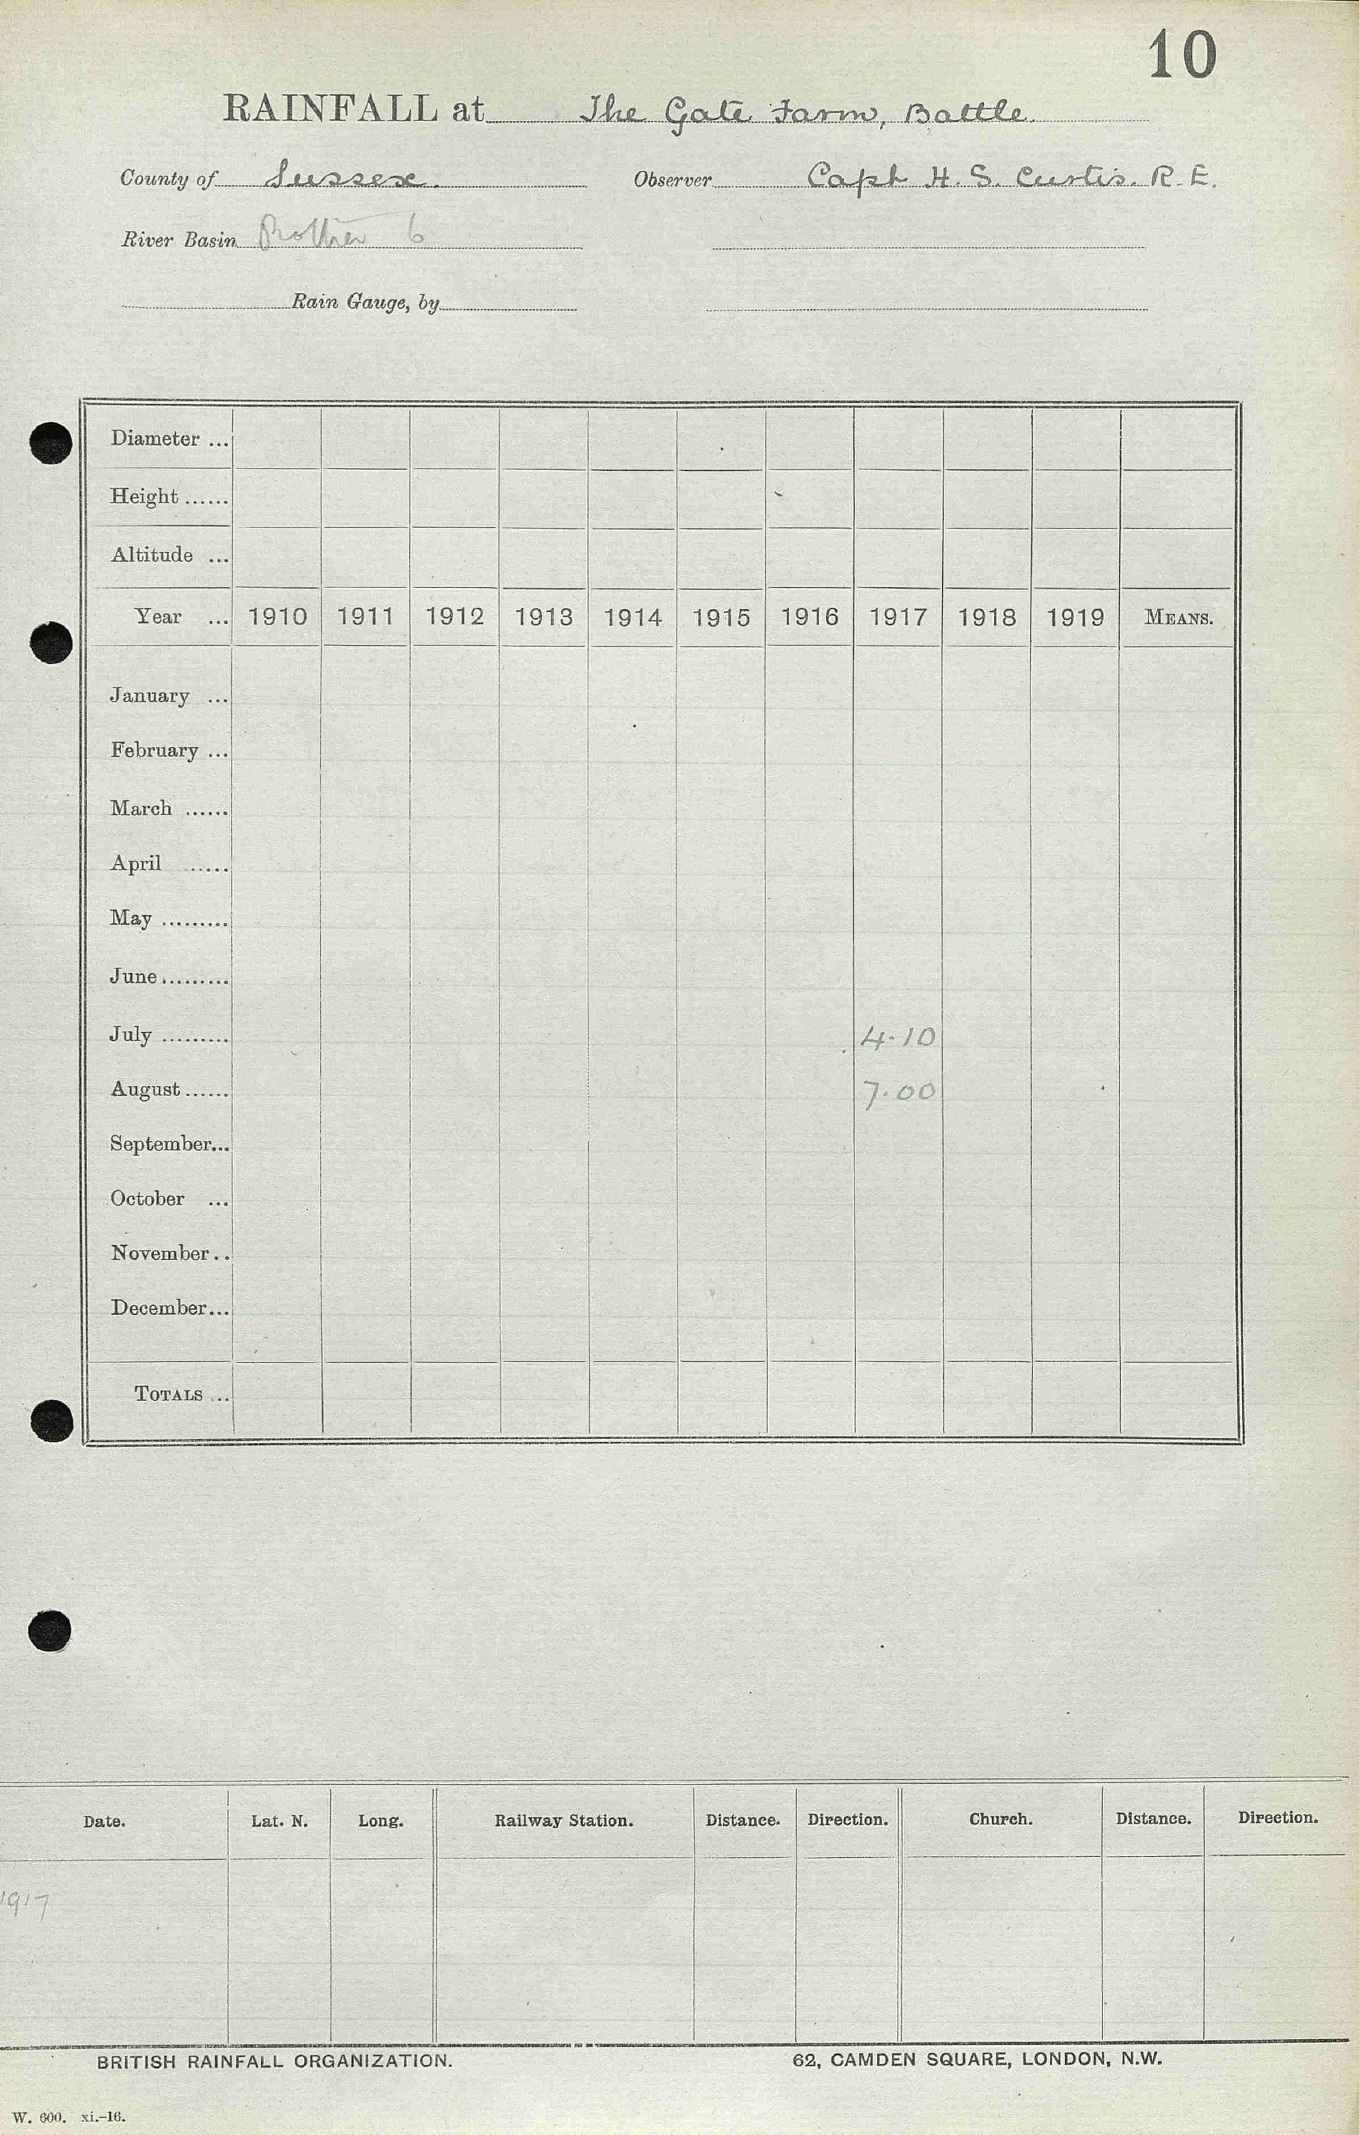 10
RAINFALL at The Gate Farm, Battle.
County of Sussex. Observer Capt H. S. Curtis. R.E.
River Basin Rother 6
Rain Gauge, by
Diameter ...
Height ......
Altitude ...
Year ... 1910 1911 1912 1913 1914 1915 1916 1917 1918 1919 MEANS.
January ...
February ...
March ......
April ......
May .........
June .........
July ......... 4.10
August ...... 7.00
September...
October ...
November..
December...
TOTALS ...
Date. Lat. N. Long. Railway Station. Distance. Direction. Church. Distance. Direction.
1917
BRITISH RAINFALL ORGANIZATION. 62, CAMDEN SQUARE, LONDON, N.W.
W. 600. xi.-16.